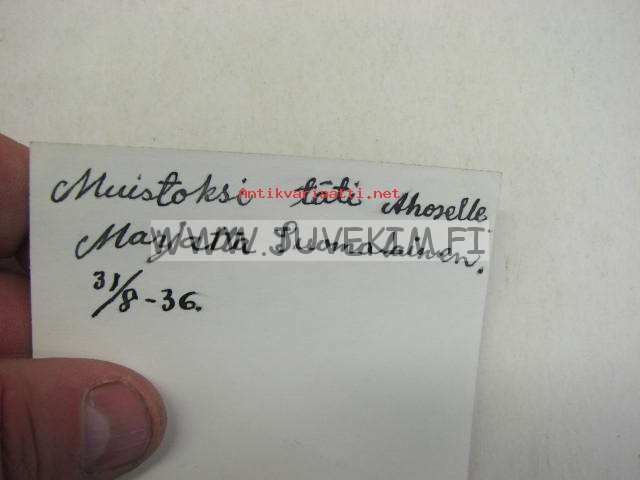 Muistoksi täti Ahoselle
Antikvariaatti.net
Marjatta Suomalainen.
WWW.SUVEKIM.FI
31/8-36.